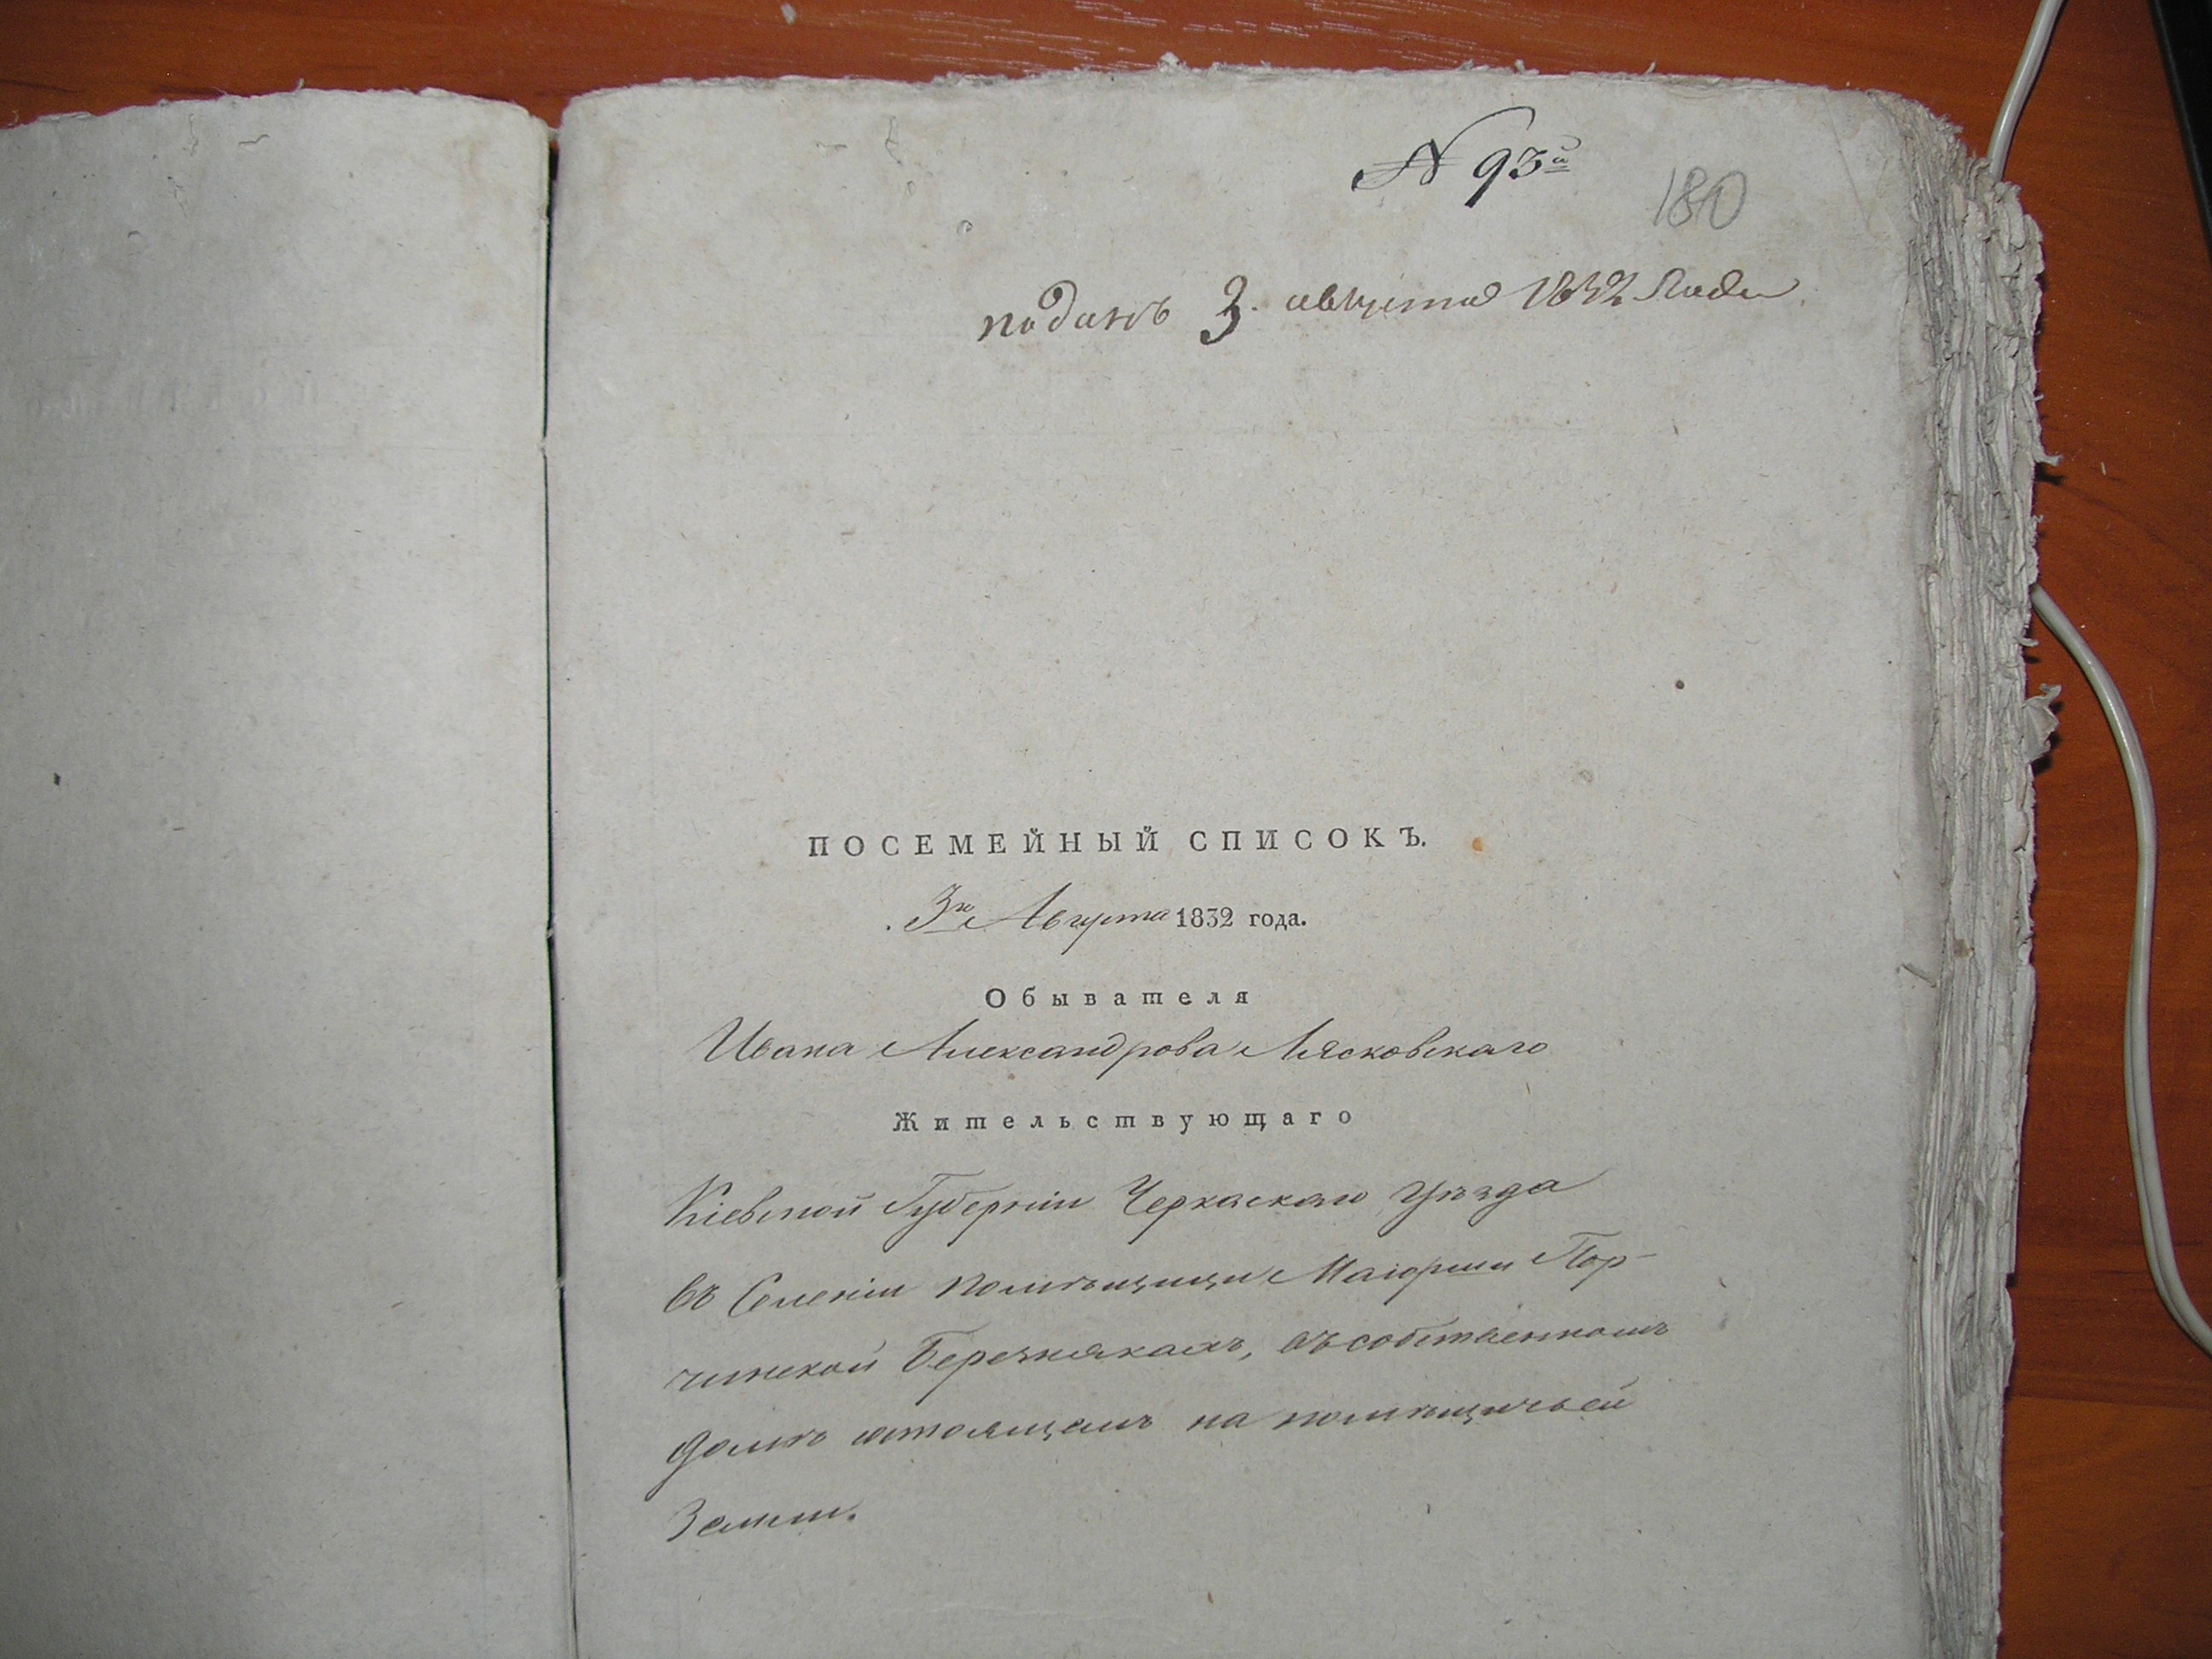 N 93й
180
поданъ 3. августа 1832 Года
ПОСЕМЕЙНЫЙ СПИСОКЪ.
3го Августа 1832 года.
Обывателя
Ивана Александрова Лясковскаго
Жительствующаго
Кіевской Губерніи Черкаскаго Уѣзда
въ Селеніи помѣщицы Маіорши Пор-
чинской Березнякахъ, въ собственномъ
домѣ стоящемъ на помѣщичьей
Земли.